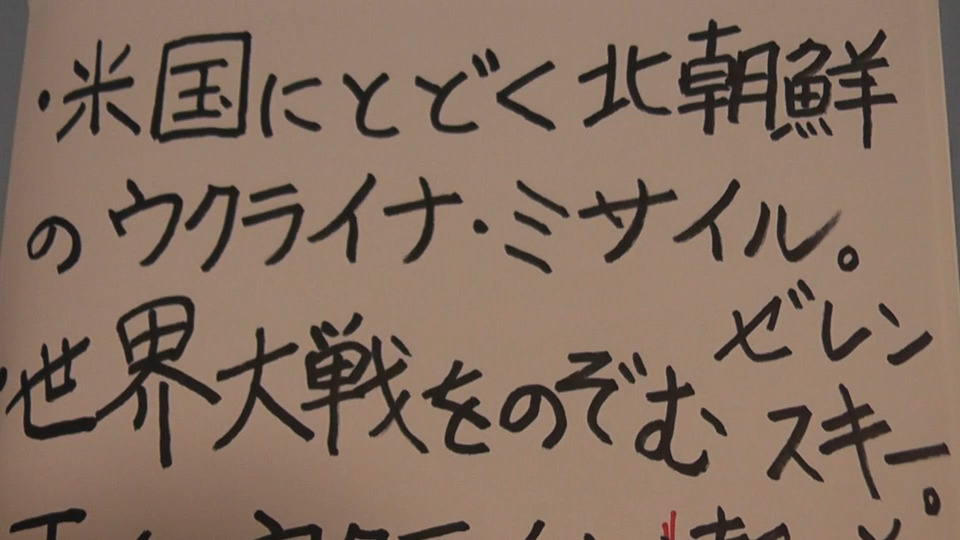 ・米国にとどく北朝鮮
のウクライナ・ミサイル。
・世界大戦をのぞむゼレンスキー。